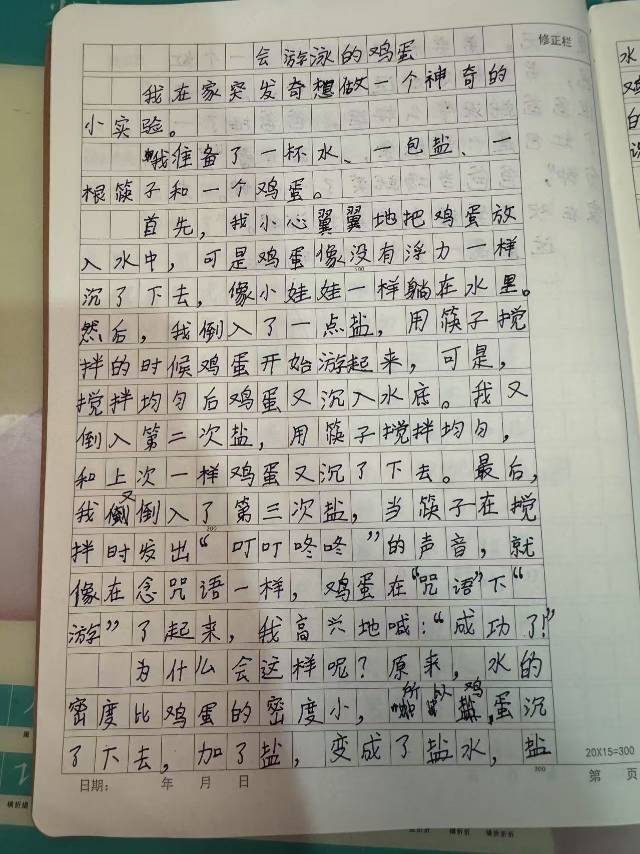 会游泳的鸡蛋
修正栏
我在家突发奇想做一个神奇的
小实验。
我准备了一杯水、一包盐、一
根筷子和一个鸡蛋。
首先，我小心翼翼地把鸡蛋放
入水中，可是鸡蛋像没有浮力一样
沉了下去，像小娃娃一样躺在水里。
然后，我倒入了一点盐，用筷子搅
拌的时候鸡蛋开始游起来，可是，
搅拌均匀后鸡蛋又沉入水底。我又
倒入第二次盐，用筷子搅拌均匀，
和上次一样鸡蛋又沉了下去。最后，
我又倒入了第三次盐，当筷子在搅
拌时发出“叮叮咚咚”的声音，就
像在念咒语一样，鸡蛋在“咒语”下“
游”了起来，我高兴地喊：“成功了！”
为什么会这样呢？原来，水的
密度比鸡蛋的密度小，所以鸡蛋沉
了下去，加了盐，变成了盐水，盐
20X15=300
日期： 年 月 日
第 页
水
鸡
的